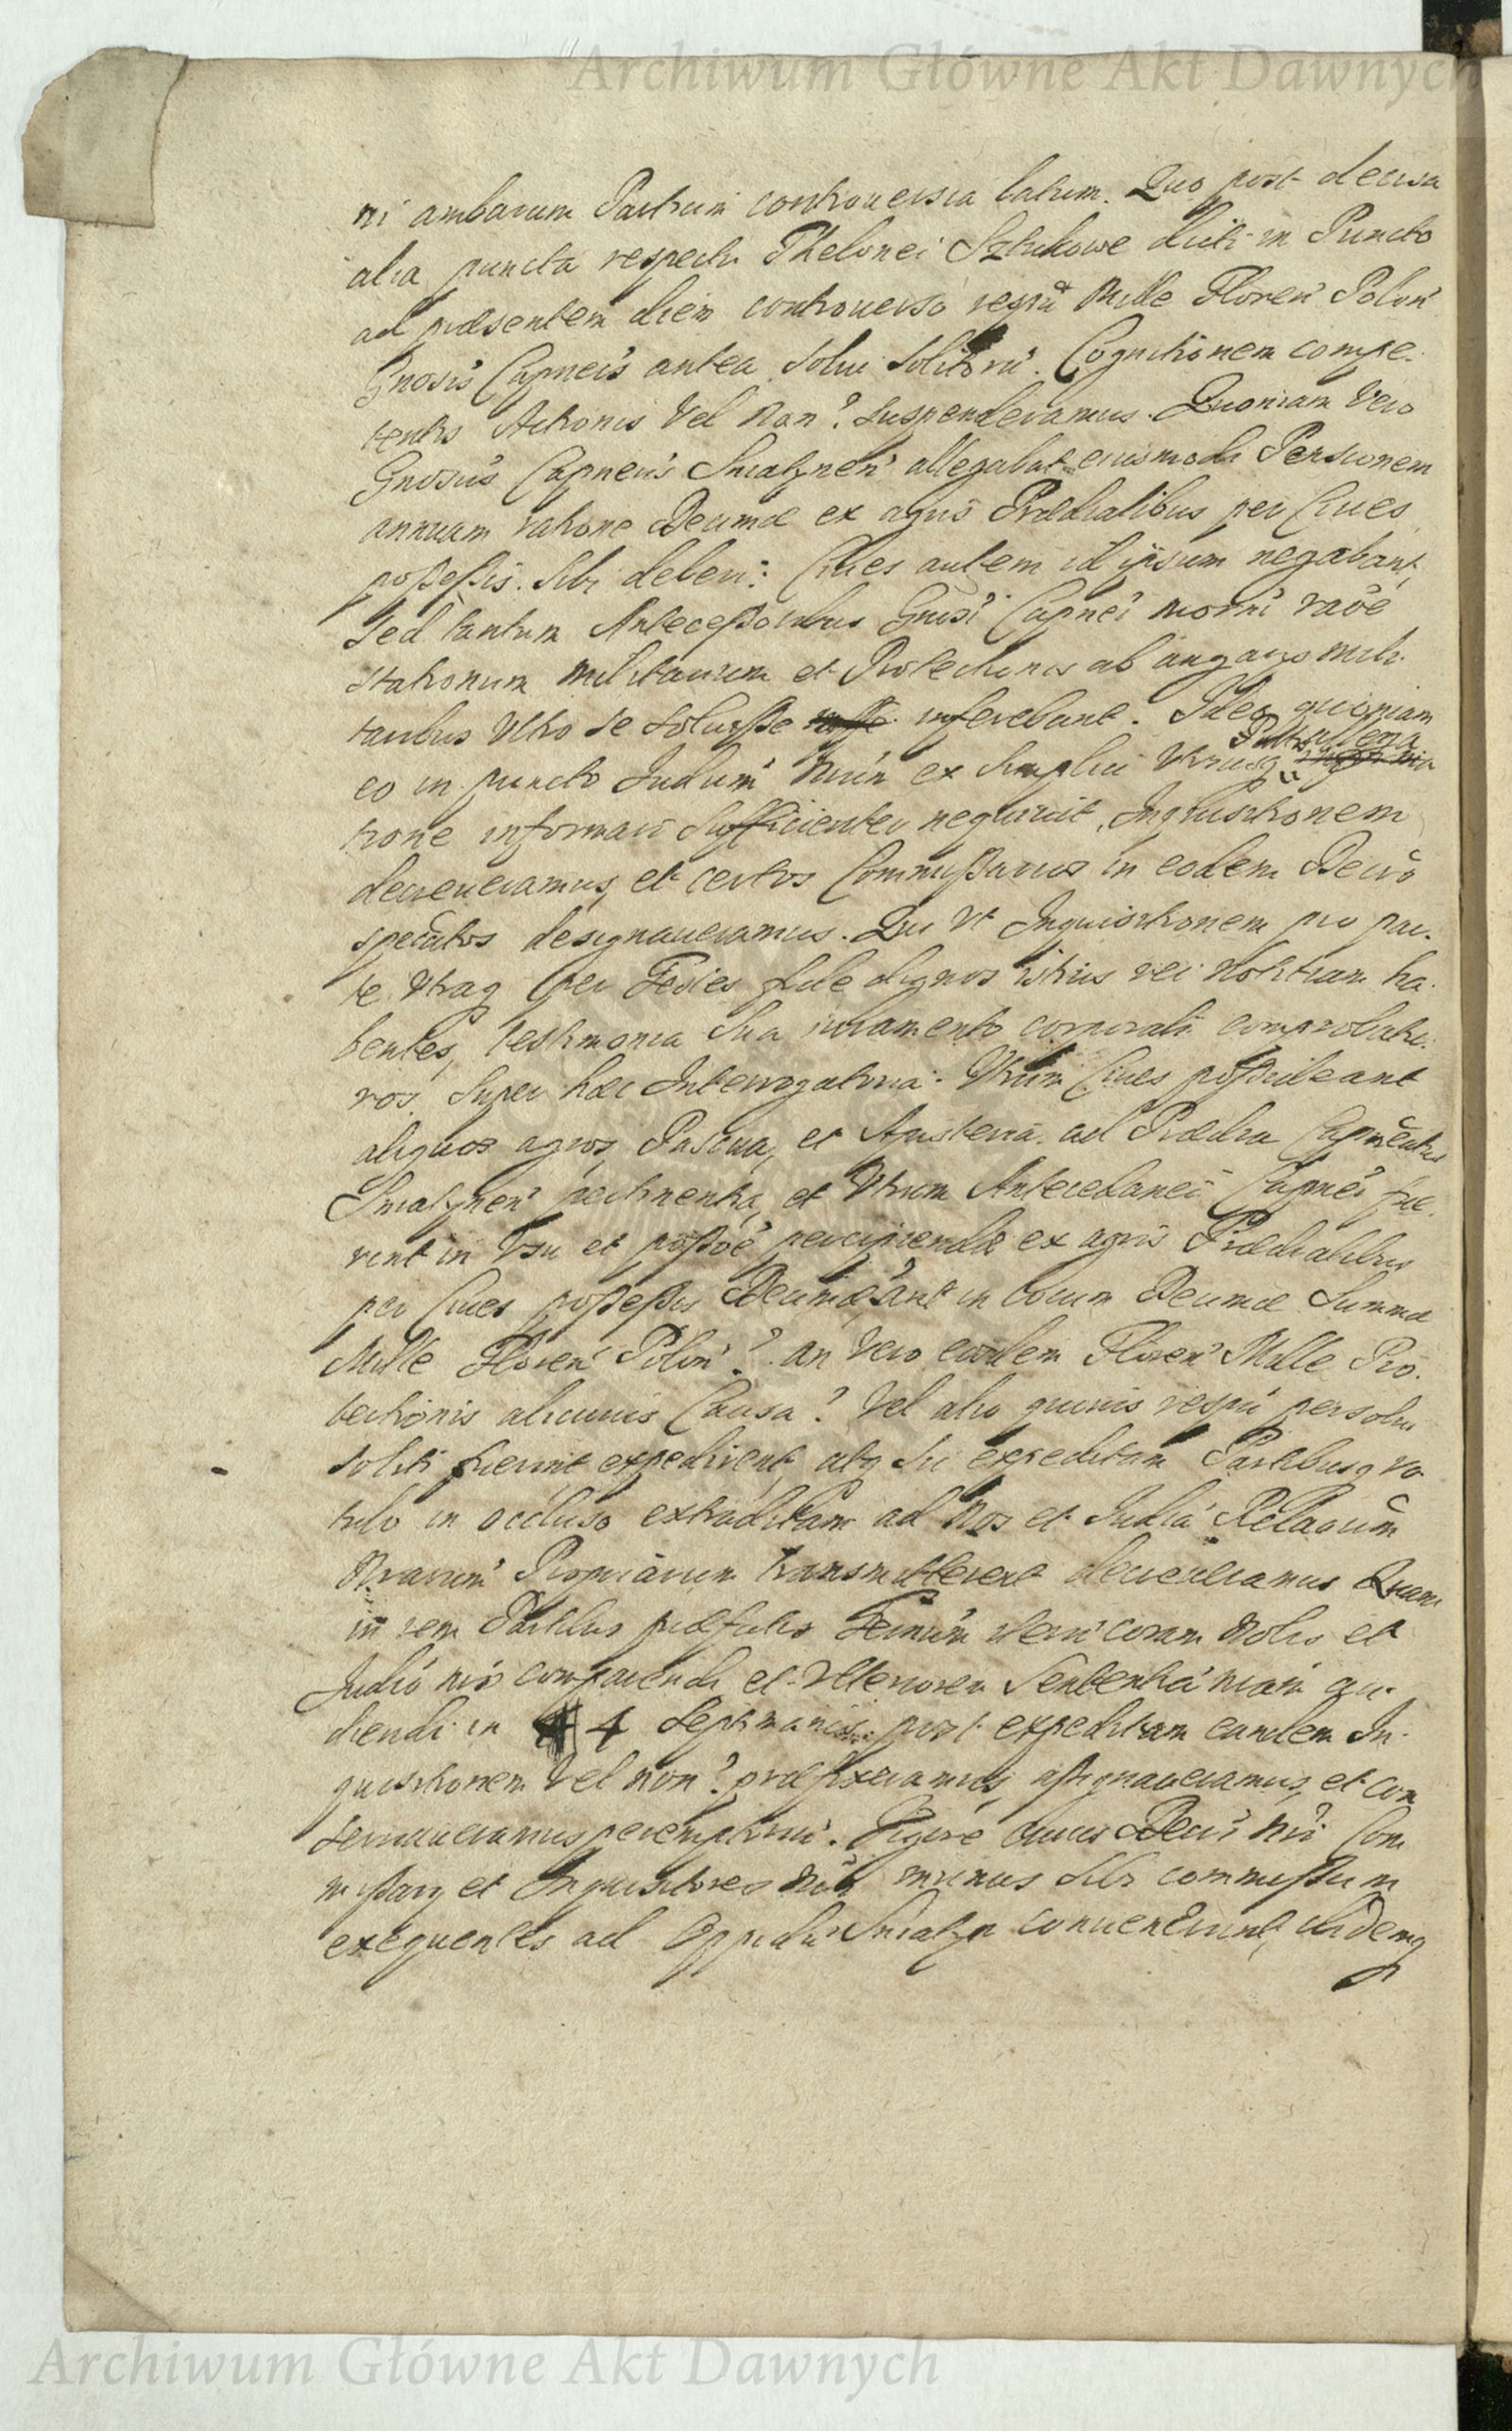 Archiwum Główne Akt Dawnych
ni ambarum Partium controversia latum. Quo post decisa
alia puncta respectu Thelonei Sztukowe dicti in Puncto
ad præsentem diem controverso respũ Mille Floren̄ Polon̄
Gnosis Capneis antea solui solitorũ. Cognitionem compe-
tentis Actionis Vel Non? suspenderamus. Quoniam Vero
Gnosus Capneus Sniatynen̄ allegabat eiusmodi Pensionem
annuam ratione Decimæ ex agris Prædialibus per Ciues
possessis. sibi deberi: Ciues autem id ipsum negabant,
sed tantum Antecessoribus Gnosi Capnei morni raõe
stationum militarium et Protectionis ab angarys mili-
taribus Vltro se soluisse inferebant. Ideo quoniam
eo in puncto Judiũ Nrũm ex simplici Vtriusq Partis allega
tione informari sufficienter nequiuit, Inquisitionem
decreueramus, et certos Commissarios in eodem Decrõ
specãtos designaueramus. Qui Vt Inquisitionem pro par-
te Vtraq per Testes fide dignos istius rei notitiam ha-
bentes, testimonia sua iuramento corporali comprobatu-
ros super hæc Interrogatoria. Vtrum Ciues possideant
aliquos agros, Pascua, et Apisteria. ad Prædia Capneatus
Sniatynen̄ pertinentia, et Vtrum Antecedanei Capnei fue-
rint in Vsu et possõe percipiendæ ex agris Prædialibus
per Ciues possessis Decimæ, ant in locum Decimæ Summa
Mille Floren̄ Polon̄? an Vero eosdem Floren̄ Mille Pro-
tectionis alicuius Causa? Vel alio quouis respũ persolui
soliti fuerint expedirent, atq sic expeditam Partibusq ro-
tulo in occluso extraditam ad Nos et Judia Relaoũm
Nrarum Propriarum transmitterent decreueramus Quam
in rem Partibus præfatis Terminũ Veri coram Nobis et
Judio nro comparendi et Vlteriorem Sententiã nram au-
diendi in 4 septimanis post expeditam eandem In-
quisitionem Vel non? præfixeramus, assignaueramus, et con
seruaueramus peremptorie. Vigore cuius Decri Nri Com
missary et Inquisitores Nri munus sibi commissum
exequentes ad Oppidũ Sniatyn conuenerunt, ibidemq
Archiwum Główne Akt Dawnych